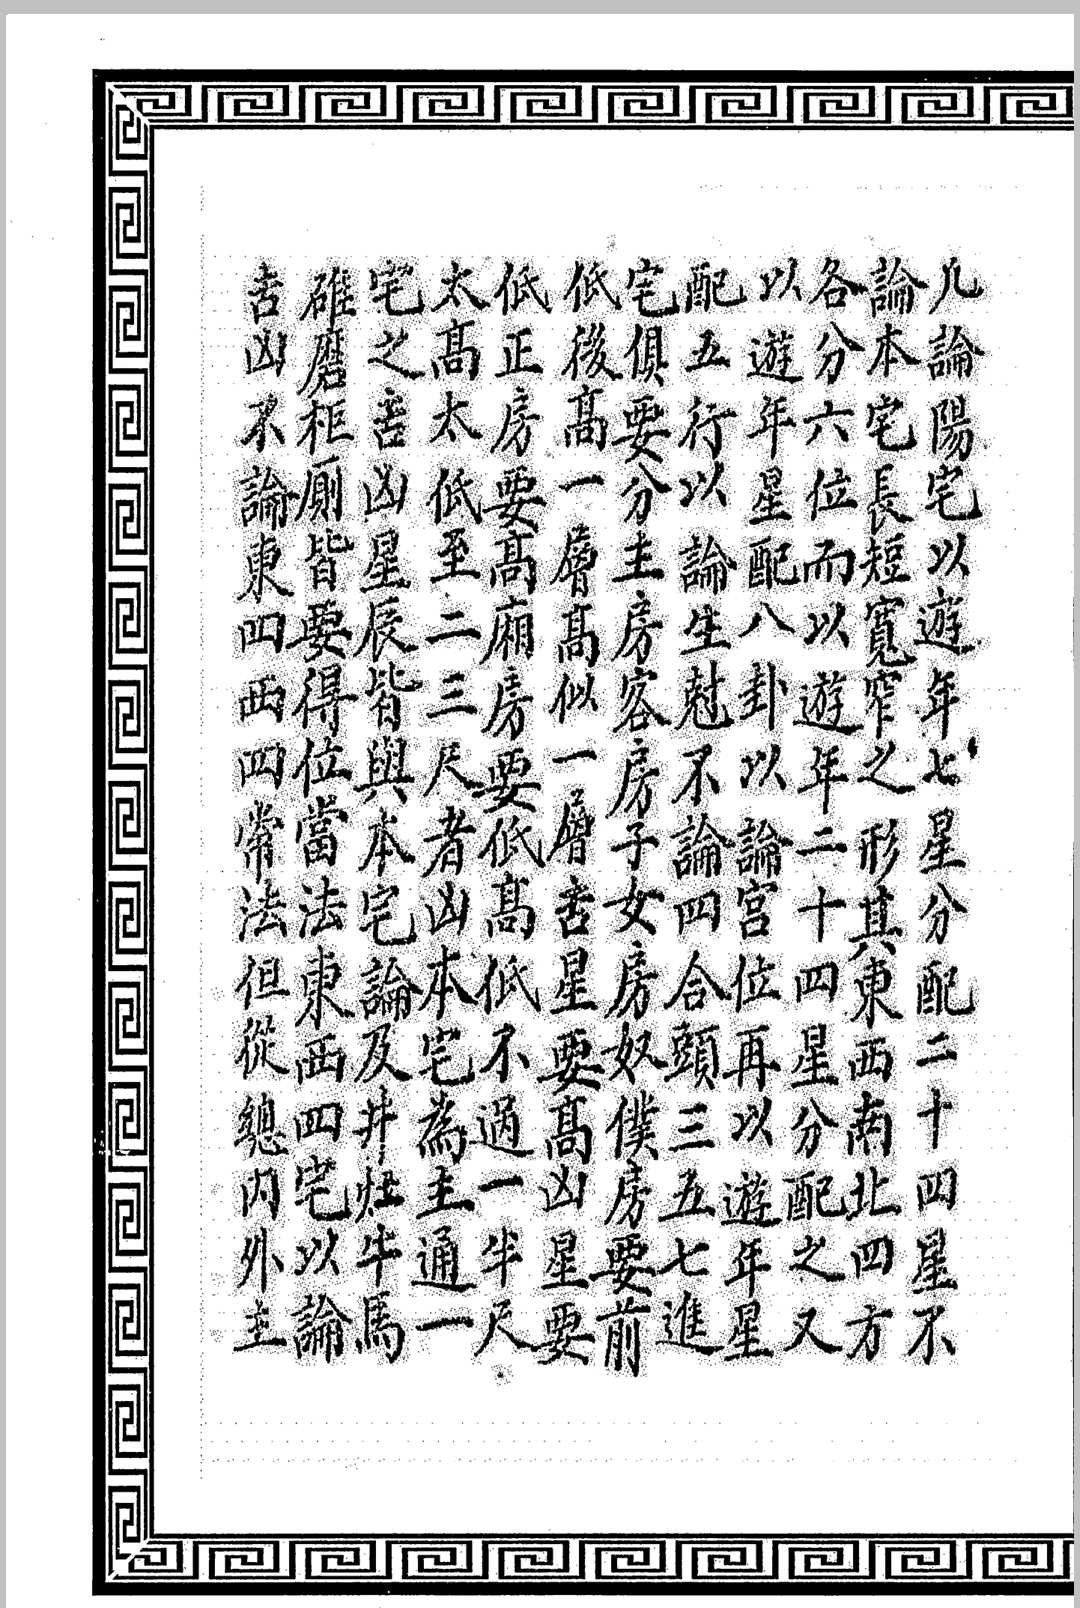 凡論陽宅以遊年七星分配二十四星不
論本宅長短寬窄之形其東西南北四方
各分六位而以遊年二十四星分配之又
以遊年星配八卦以論宮位再以遊年星
配五行以論生尅不論四合頭三五七進
宅俱要分主房客房子女房奴僕房要前
低後高一層高似一層吉星要高凶星要
低正房要高廂房要低高低不過一半尺
太高太低至二三尺者凶本宅為主通一
宅之吉凶星辰皆與本宅論及井灶牛馬
碓磨柜厠皆要得位當法東西四宅以論
吉凶不論東四西四常法但從總內外主